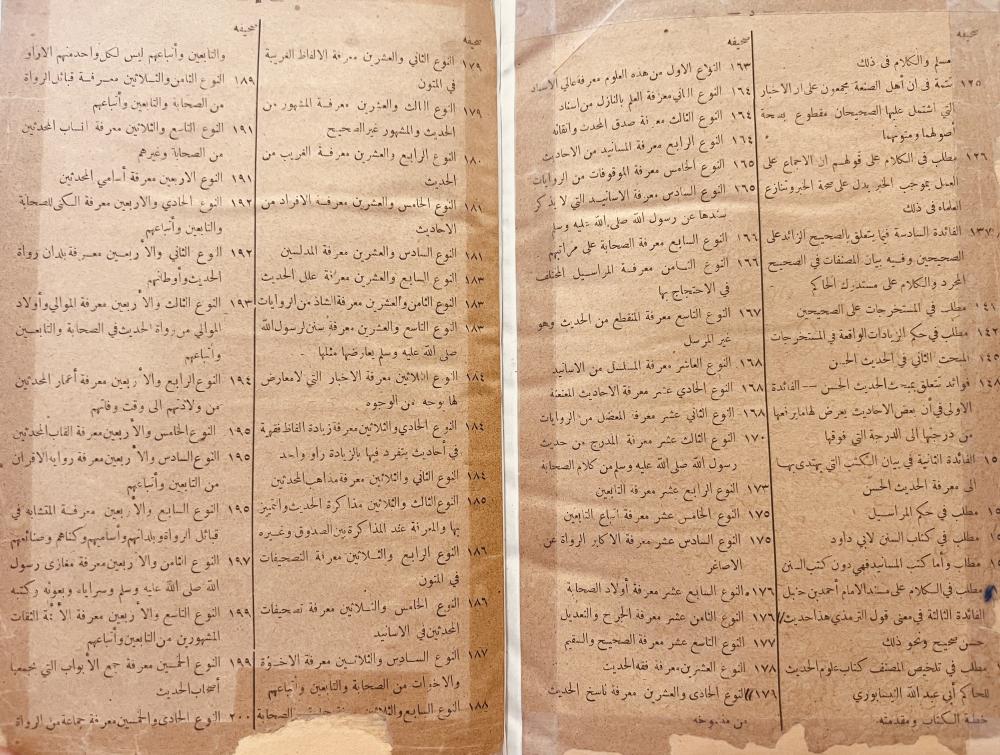 صحيفه
مسلم والكلام فى ذلك
١٢٥ تتمة فى ان أهل الصنعة مجمعون على ان الاخبار
التى اشتمل عليها الصحيحان مقطوع بصحة
أصولها ومتونها
١٢٦ مطلب فى الكلام على قولهم ان الاجماع على
العمل بموجب الخبر يدل على صحة الخبر وتنازع
العلماء فى ذلك
١٣٧ الفائدة السادسة فيما يتعلق بالصحيح الزائد على
الصحيحين وفيه بيان المصنفات فى الصحيح
المجرد والكلام على مستدرك الحاكم
١٤١ مطلب فى المستخرجات على الصحيحين
١٤٢ مطلب فى حكم الزيادات الواقعة فى المستخرجات
١٤٥ المبحث الثانى فى الحديث الحسن
١٤٨ فوائد تتعلق بمبحث الحديث الحسن — الفائدة
الاولى فى أن بعض الاحاديث يعرض لها ما يرفعها
من درجتها الى الدرجة التى فوقها
الفائدة الثانية فى بيان الكتب التى يهتدى بها
الى معرفة الحديث الحسن
مطلب فى حكم المراسيل
مطلب فى كتاب السنن لابى داود
مطلب وأما كتب المسانيد فهى دون كتب السنن
مطلب فى الكلام على مسند الامام أحمد بن حنبل
الفائدة الثالثة فى معنى قول الترمذى هذا حديث
حسن صحيح ونحو ذلك
مطلب فى تلخيص المصنف كتاب علوم الحديث
للحاكم أبى عبد الله النيسابورى
خطبة الكتاب ومقدمته
صحيفه
١٦٣ النوع الاول من هذه العلوم معرفة عالى الاسناد
١٦٤ النوع الثانى معرفة العلم بالنازل من اسناد
١٦٤ النوع الثالث معرفة صدق المحدث واتقانه
١٦٤ النوع الرابع معرفة المسانيد من الاحاديث
١٦٥ النوع الخامس معرفة الموقوفات من الروايات
١٦٥ النوع السادس معرفة الاسانيد التى لا يذكر
سندها عن رسول الله صلى الله عليه وسلم
١٦٦ النوع السابع معرفة الصحابة على مراتبهم
١٦٦ النوع الثامن معرفة المراسيل المختلف
فى الاحتجاج بها
١٦٧ النوع التاسع معرفة المنقطع من الحديث وهو
غير المرسل
١٦٨ النوع العاشر معرفة المسلسل من الاسانيد
١٦٨ النوع الحادى عشر معرفة الاحاديث المعنعنة
١٦٨ النوع الثانى عشر معرفة المعضل من الروايات
١٧٠ النوع الثالث عشر معرفة المدرج من حديث
رسول الله صلى الله عليه وسلم من كلام الصحابة
١٧٣ النوع الرابع عشر معرفة التابعين
١٧٥ النوع الخامس عشر معرفة اتباع التابعين
١٧٥ النوع السادس عشر معرفة الاكابر الرواة عن
الاصاغر
١٧٦ النوع السابع عشر معرفة أولاد الصحابة
١٧٦ النوع الثامن عشر معرفة الجرح والتعديل
١٧٧ النوع التاسع عشر معرفة الصحيح والسقيم
١٧٨ النوع العشرين معرفة فقه الحديث
١٧٩ النوع الحادى والعشرين معرفة ناسخ الحديث
من منسوخه
صحيفه
١٧٩ النوع الثانى والعشرين معرفة الالفاظ الغريبة
فى المتون
١٧٩ النوع الثالث والعشرين معرفة المشهور من
الحديث والمشهور غير الصحيح
١٨٠ النوع الرابع والعشرين معرفة الغريب من
الحديث
١٨١ النوع الخامس والعشرين معرفة الافراد من
الاحاديث
١٨١ النوع السادس والعشرين معرفة المدلسين
١٨٣ النوع السابع والعشرين معرفة علل الحديث
١٨٣ النوع الثامن والعشرين معرفة الشاذ من الروايات
١٨٣ النوع التاسع والعشرين معرفة سنن لرسول الله
صلى الله عليه وسلم يعارضها مثلها
١٨٤ النوع الثلاثين معرفة الاخبار التى لا معارض
لها بوجه من الوجوه
١٨٤ النوع الحادى والثلاثين معرفة زيادة الفاظ فقهية
فى أحاديث يتفرد فيها بالزيادة راو واحد
١٨٤ النوع الثانى والثلاثين معرفة مذاهب المحدثين
١٨٥ النوع الثالث والثلاثين مذاكرة الحديث والتمييز
بها والمعرفة عند المذاكرة بين الصدوق وغيره
١٨٦ النوع الرابع والثلاثين معرفة التصحيفات
فى المتون
١٨٦ النوع الخامس والثلاثين معرفة تصحيفات
المحدثين فى الاسانيد
١٨٧ النوع السادس والثلاثين معرفة الاخوة
والاخوات من الصحابة والتابعين وأتباعهم
١٨٨ النوع السابع والثلاثين معرفة الصحابة
صحيفه
والتابعين وأتباعهم ليس لكل واحد منهم الا راو
١٨٩ النوع الثامن والثلاثين معرفة قبائل الرواة
من الصحابة والتابعين وأتباعهم
١٩١ النوع التاسع والثلاثين معرفة أنساب المحدثين
من الصحابة وغيرهم
١٩١ النوع الاربعين معرفة أسامى المحدثين
١٩٢ النوع الحادى والاربعين معرفة الكنى للصحابة
والتابعين وأتباعهم
١٩٢ النوع الثانى والأربعين معرفة بلدان رواة
الحديث وأوطانهم
١٩٣ النوع الثالث والأربعين معرفة الموالى وأولاد
الموالى من رواة الحديث فى الصحابة والتابعين
وأتباعهم
١٩٤ النوع الرابع والأربعين معرفة أعمار المحدثين
من ولادتهم الى وقت وفاتهم
١٩٥ النوع الخامس والأربعين معرفة القاب المحدثين
١٩٥ النوع السادس والأربعين معرفة رواية الاقران
من التابعين وأتباعهم
١٩٥ النوع السابع والأربعين معرفة المتشابه فى
قبائل الرواة وبلدانهم وأساميهم وكناهم وصنائعهم
١٩٧ النوع الثامن والأربعين معرفة مغازى رسول
الله صلى الله عليه وسلم وسراياه وبعوثه وكتبه
١٩٩ النوع التاسع والأربعين معرفة الأئمة الثقات
المشهورين من التابعين وأتباعهم
١٩٩ النوع الخمسين معرفة جمع الأبواب التى يجمعها
أصحاب الحديث
٢٠٠ النوع الحادى والخمسين معرفة جماعة من الرواة